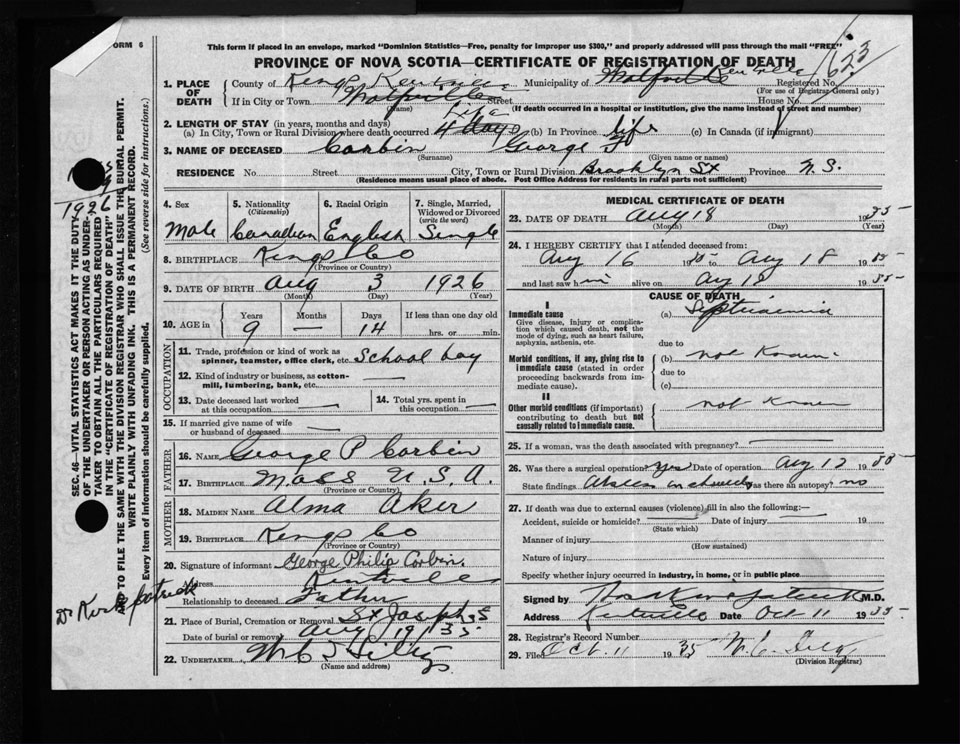 ORM 6
This form if placed in an envelope, marked "Dominion Statistics—Free, penalty for improper use $300," and properly addressed will pass through the mail "FREE"
PROVINCE OF NOVA SCOTIA—CERTIFICATE OF REGISTRATION OF DEATH
1. PLACE OF DEATH
County of Kings Kentville Municipality of Kentville Registered No. 623
(For use of Registrar General only)
If in City or Town Street House No.
(Name) (If death occurred in a hospital or institution, give the name instead of street and number)
Life
2. LENGTH OF STAY (in years, months and days)
(a) In City, Town or Rural Division where death occurred 4 days (b) In Province Life (c) In Canada (if immigrant)
3. NAME OF DECEASED Corbin George F
(Surname) (Given name or names)
RESIDENCE No. Street City, Town or Rural Division Brooklyn St Province N.S.
(Residence means usual place of abode. Post Office Address for residents in rural parts not sufficient)
4. Sex 5. Nationality (Citizenship) 6. Racial Origin 7. Single, Married, Widowed or Divorced (write the word)
Male Canadian English Single
8. BIRTHPLACE Kings Co
(Province or Country)
9. DATE OF BIRTH Aug 3 1926
(Month) (Day) (Year)
10. AGE in Years Months Days If less than one day old
9 — 14 hrs. or min.
OCCUPATION
11. Trade, profession or kind of work as spinner, teamster, office clerk, etc. School boy
12. Kind of industry or business, as cotton-mill, lumbering, bank, etc. —
13. Date deceased last worked at this occupation —
14. Total yrs. spent in this occupation —
15. If married give name of wife or husband of deceased —
FATHER
16. NAME George P Corbin
17. BIRTHPLACE Mass U.S.A.
(Province or Country)
MOTHER
18. MAIDEN NAME Alma Aker
19. BIRTHPLACE Kings Co
(Province or Country)
20. Signature of informant George Philip Corbin
Address Kentville
Relationship to deceased Father
21. Place of Burial, Cremation or Removal St Josephs
Date of burial or removal Aug 19 1935
22. UNDERTAKER
(Name and address)
MEDICAL CERTIFICATE OF DEATH
23. DATE OF DEATH Aug 18 1935
(Month) (Day) (Year)
24. I HEREBY CERTIFY that I attended deceased from:
Aug 16 1935 to Aug 18 1935
and last saw him alive on Aug 18 1935
CAUSE OF DEATH
I
Immediate cause
Give disease, injury or complication which caused death, not the mode of dying, such as heart failure, asphyxia, asthenia, etc.
(a) Septicaemia
due to
Morbid conditions, if any, giving rise to immediate cause (stated in order proceeding backwards from immediate cause).
(b) not Known
due to
(c)
II
Other morbid conditions (if important) contributing to death but not causally related to immediate cause.
not Known
25. If a woman, was the death associated with pregnancy?
26. Was there a surgical operation? Yes Date of operation Aug 1935
State findings Abscess in shoulder Was there an autopsy? no
27. If death was due to external causes (violence) fill in also the following:—
Accident, suicide or homicide? Date of injury 19
(State which)
Manner of injury
(How sustained)
Nature of injury
Specify whether injury occurred in industry, in home, or in public place
Signed by M.D.
Address Kentville Date Oct 11 1935
28. Registrar's Record Number
29. Filed Oct. 11 1935
(Division Registrar)
1926
Dr Kirkpatrick
SEC. 46—VITAL STATISTICS ACT MAKES IT THE DUTY
OF THE UNDERTAKER OR PERSON ACTING AS UNDER-
TAKER TO OBTAIN ALL THE PARTICULARS REQUIRED
IN THE "CERTIFICATE OF REGISTRATION OF DEATH"
TO FILE THE SAME WITH THE DIVISION REGISTRAR WHO SHALL ISSUE THE BURIAL PERMIT.
WRITE PLAINLY WITH UNFADING INK. THIS IS A PERMANENT RECORD.
Every item of information should be carefully supplied. (See reverse side for instructions.)